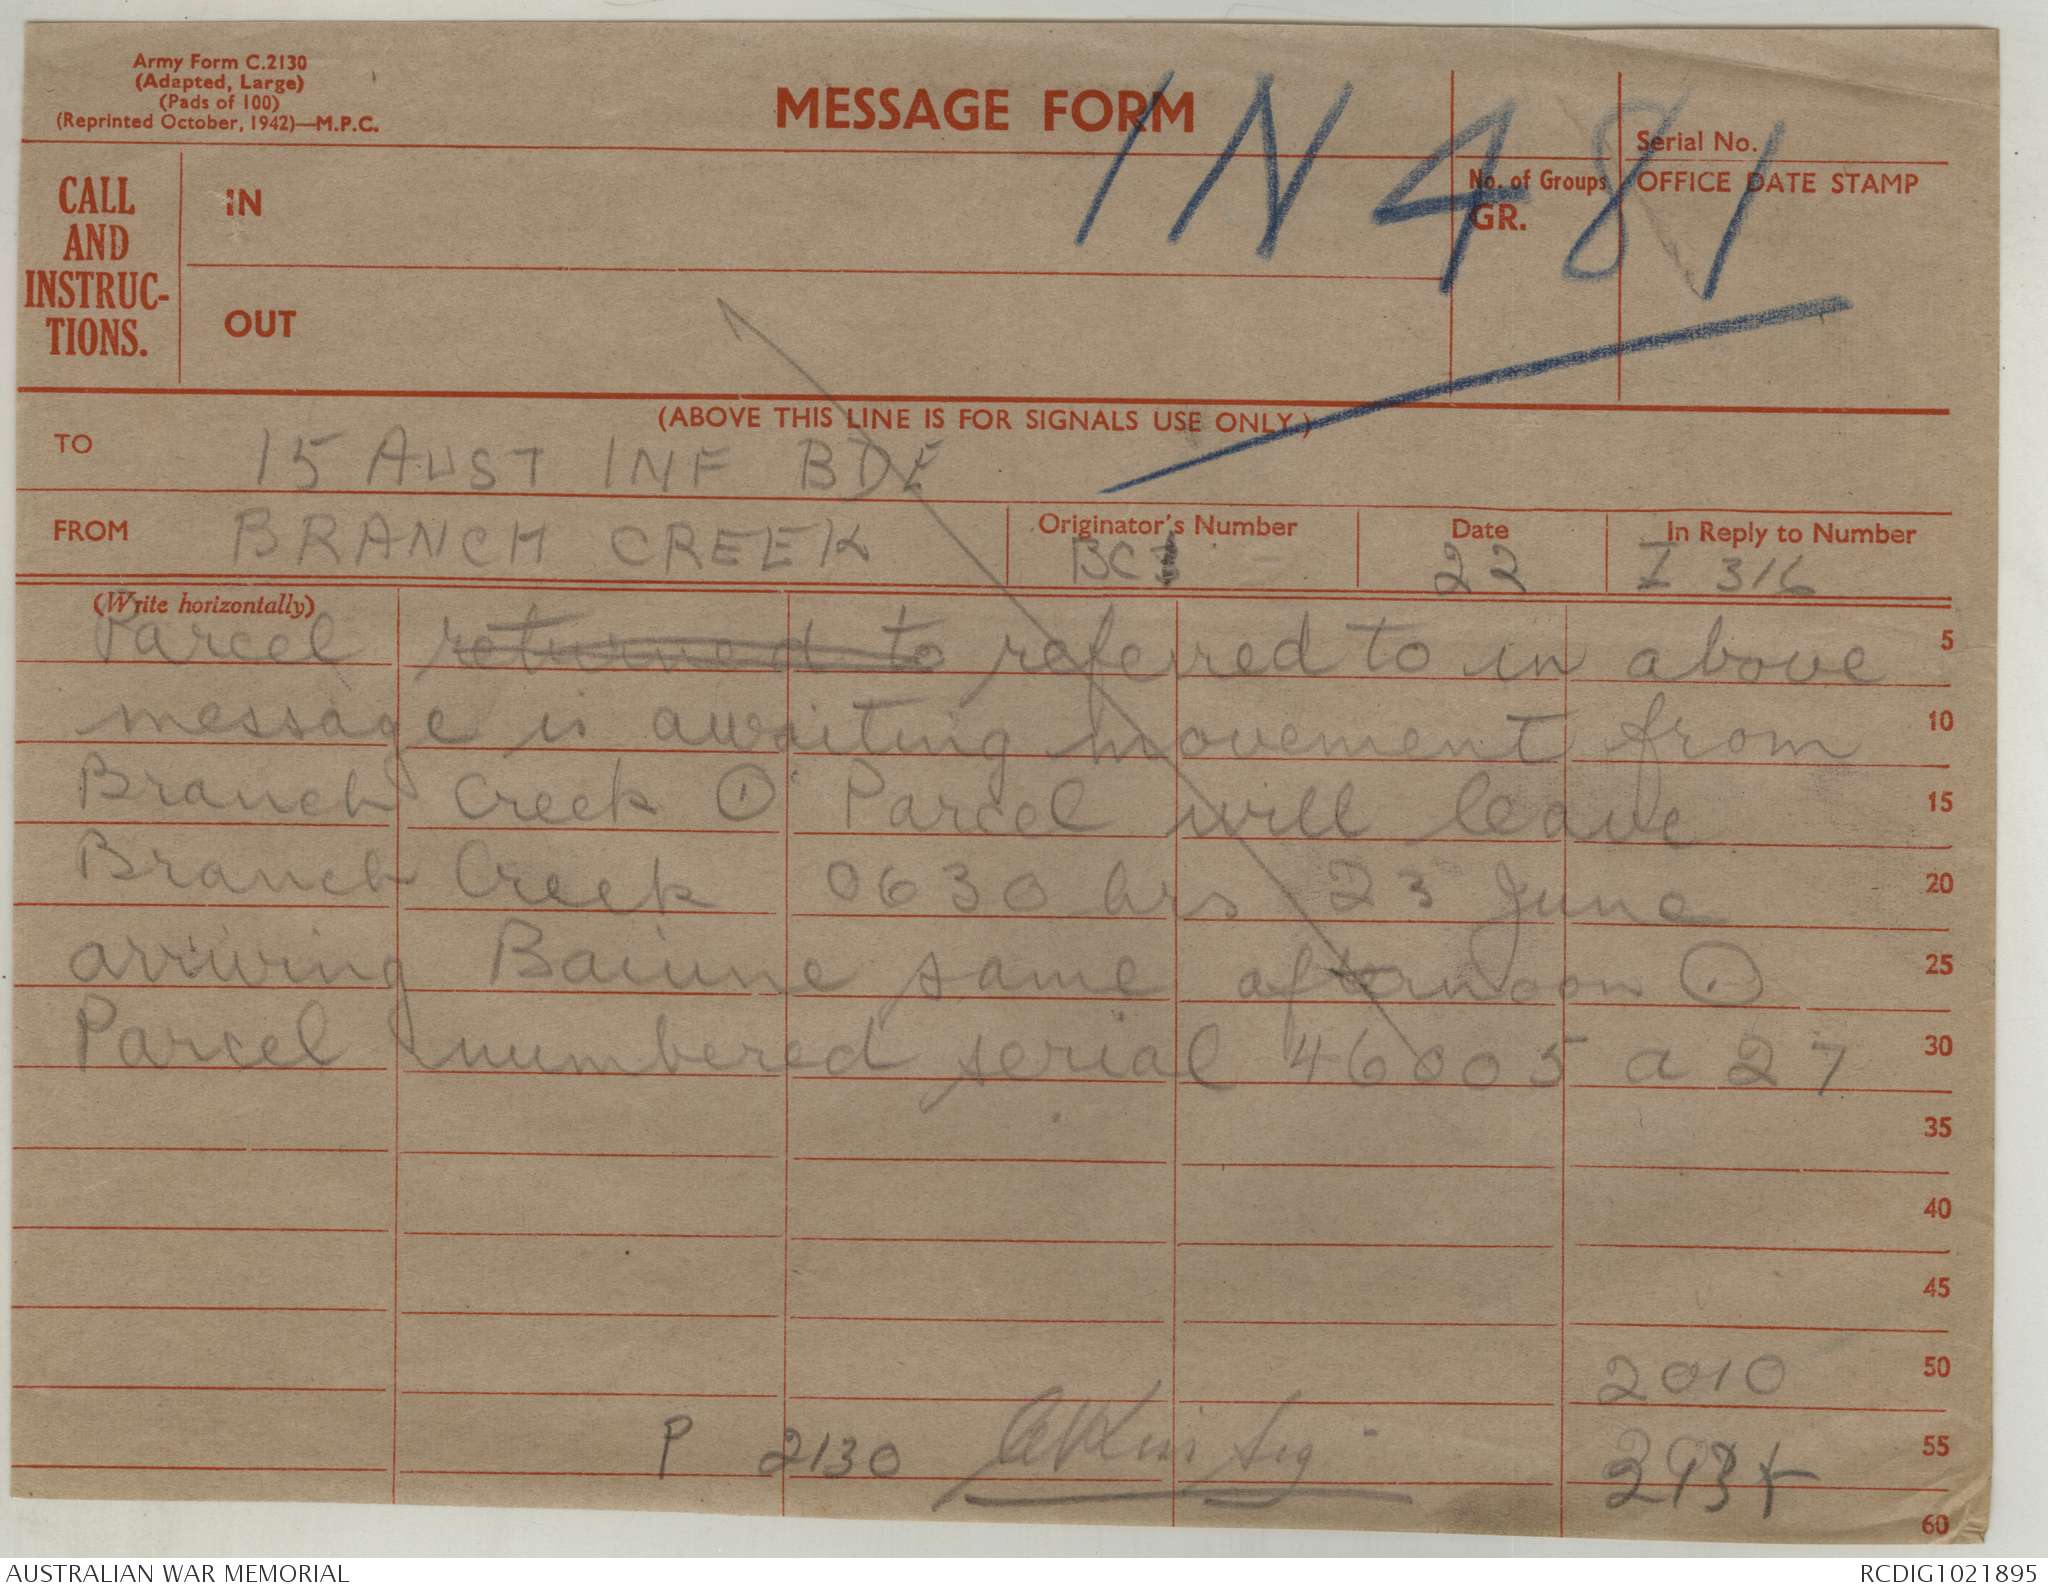 Army Form C.2130
(Adapted, Large)
(Pads of 100)
(Reprinted October, 1942)—M.P.C.
MESSAGE FORM
IN 481
Serial No.
CALL
AND
INSTRUC-
TIONS.
IN
OUT
No. of Groups
GR.
OFFICE DATE STAMP
(ABOVE THIS LINE IS FOR SIGNALS USE ONLY.)
TO 15 AUST INF BDE
FROM BRANCH CREEK
Originator's Number BC
Date 22
In Reply to Number I 316
(Write horizontally)
Parcel returned to referred to in above 5
message is awaiting movement from 10
Branch Creek ⊙ Parcel will leave 15
Branch Creek 0630 hrs 23 June 20
arriving Baiune same afternoon ⊙ 25
Parcel numbered serial 46005 a 27 30
35
40
45
2010 50
P 2130 Sig 55
60
AUSTRALIAN WAR MEMORIAL
RCDIG1021895